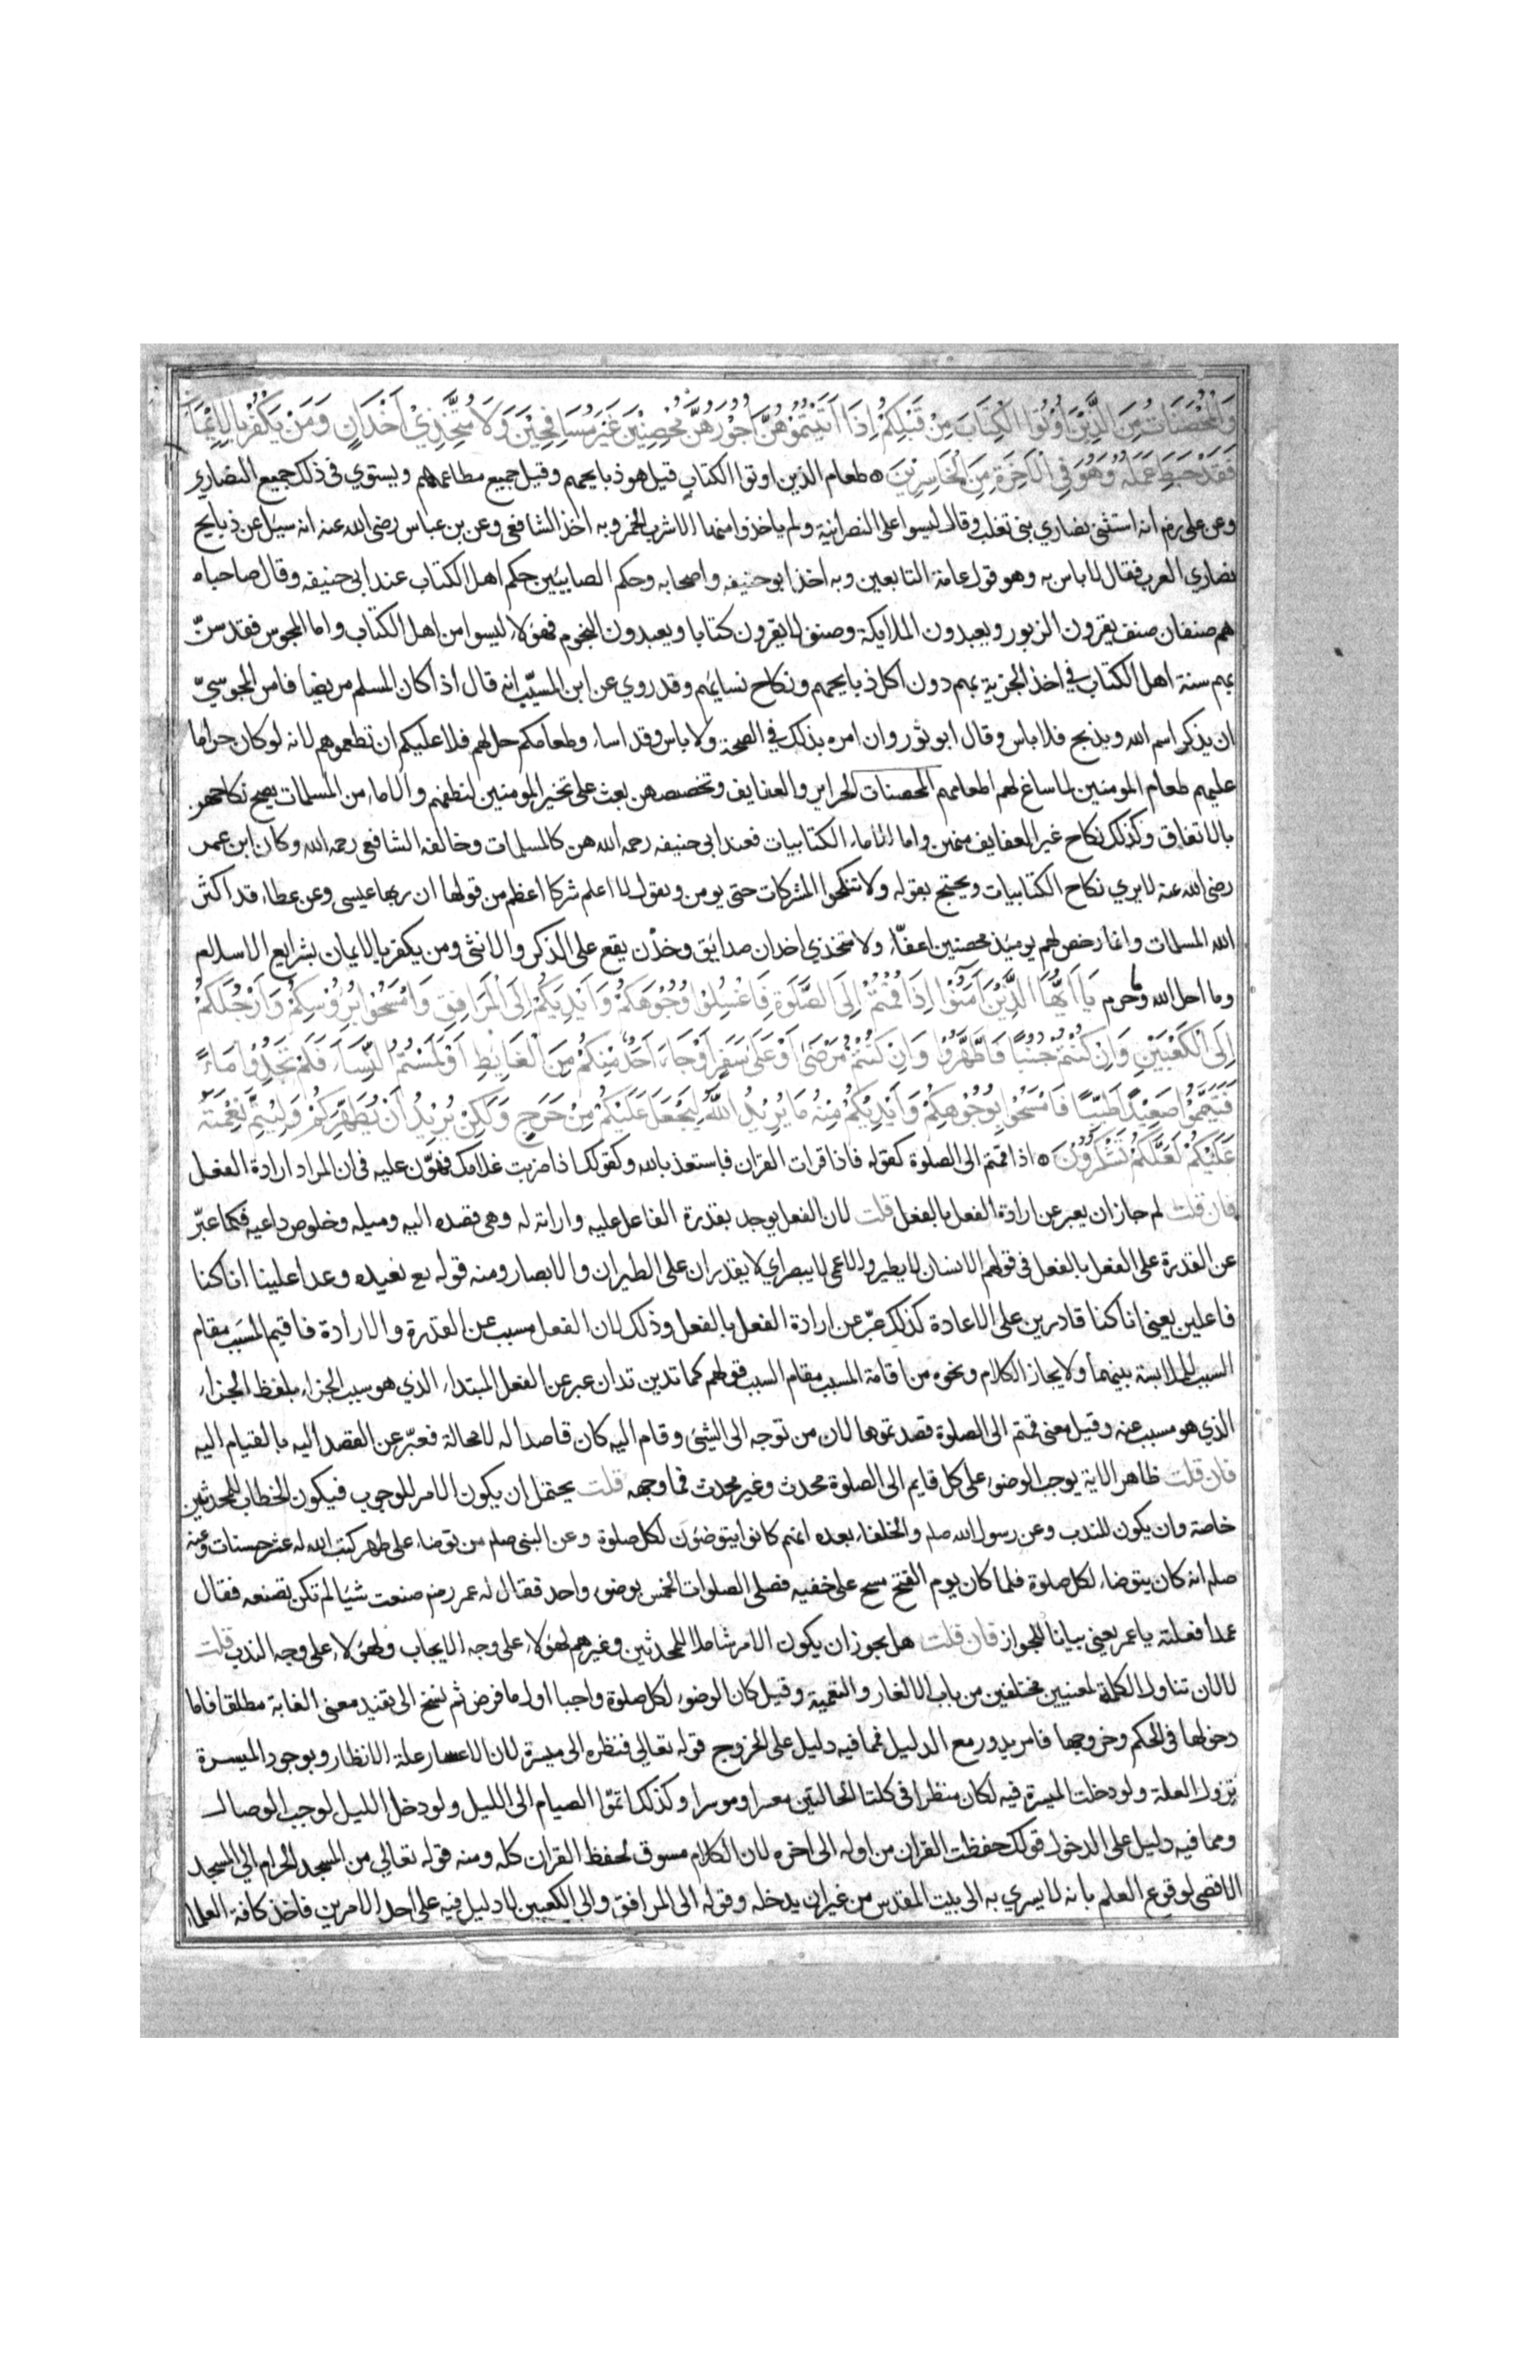 وَالْمُحْصَنَاتُ مِنَ الَّذِيْنَ اُوْتُوا الْكِتَابَ مِنْ قَبْلِكُمْ اِذَا اٰتَيْتُمُوْهُنَّ اُجُوْرَهُنَّ مُحْصِنِيْنَ غَيْرَ مُسَافِحِيْنَ وَلَا مُتَّخِذِيْ اَخْدَانٍ وَمَنْ يَكْفُرْ بِالْاِيْمَانِ
فَقَدْ حَبِطَ عَمَلُهُ وَهُوَ فِي الْاٰخِرَةِ مِنَ الْخَاسِرِيْنَ ه طعام الذين اوتوا الكتاب قيل هو ذبايحهم وقيل جميع مطاعمهم ويستوي فى ذلك جميع النصاري
وعن على رض انه استثنى نصاري بنى تغلب وقال ليسوا على النصرانية ولم ياخذوا منها الا شرب الخمر وبه اخذ الشافعى وعن بن عباس رضى الله عنه انه سيل عن ذبايح
نصاري العرب فقال لا باس به وهو قول عامة التابعين وبه اخذ ابو حنيفه واصحابه وحكم الصابيين حكم اهل الكتاب عند ابى حنيفه وقال صاحباه
هم صنفان صنف يقرون الزبور ويعبدون الملايكة وصنف لا يقرون كتابا ويعبدون النجوم فهؤلاء ليسوا من اهل الكتاب واما المجوس فقد سنّ
بهم سنة اهل الكتاب في اخذ الجزية بهم دون اكل ذبايحهم ونكاح نسايهم وقد روي عن ابن المسيّب انه قال اذا كان المسلم مريضا فامر المجوسيّ
ان يذكر اسم الله ويذبح فلا باس وقال ابو ثور وان امره بذلك في الصحة ولا باس وقد اساء وطعامكم حل لهم فلا عليكم ان تطعموهم لانه لو كان حراما
عليهم طعام المومنين لما ساغ لهم اطعامهم المحصنات الحراير والعفايف وتخصصهن بعث على تخير المومنين لنطفهم والاماء من المسلمات يصح نكاحهن
بالاتفاق وكذلك نكاح غير العفايف منهن واما الاماء الكتابيات فعند ابى حنيفه رحمه الله هن كالمسلمات وخالفه الشافعى رحمه الله وكان ابن عمر
رضى الله عنه لا يري نكاح الكتابيات ويحتج بقوله ولا تنكحوا المشركات حتى يومن ويقول لا اعلم شركا اعظم من قولها ان ربها عيسى وعن عطاء قد اكثر
الله المسلمات وانما رخص لهم يوميذ محصنين اعفّاء ولا متخذي اخدان صدايق وخدْن يقع على الذكر والانثى ومن يكفر بالايمان بشرايع الاسلام
وما احل الله وحرم يَا اَيُّهَا الَّذِيْنَ اٰمَنُوْا اِذَا قُمْتُمْ اِلَى الصَّلٰوةِ فَاغْسِلُوْا وُجُوْهَكُمْ وَاَيْدِيَكُمْ اِلَى الْمَرَافِقِ وَامْسَحُوْا بِرُءُوْسِكُمْ وَاَرْجُلَكُمْ
اِلَى الْكَعْبَيْنِ وَاِنْ كُنْتُمْ جُنُبًا فَاطَّهَّرُوْا وَاِنْ كُنْتُمْ مَرْضَىٰ اَوْ عَلَىٰ سَفَرٍ اَوْ جَاءَ اَحَدٌ مِنْكُمْ مِنَ الْغَايِطِ اَوْ لَمَسْتُمُ النِّسَاءَ فَلَمْ تَجِدُوْا مَاءً
فَتَيَمَّمُوْا صَعِيْدًا طَيِّبًا فَامْسَحُوْا بِوُجُوْهِكُمْ وَاَيْدِيْكُمْ مِنْهُ مَا يُرِيْدُ اللّٰهُ لِيَجْعَلَ عَلَيْكُمْ مِنْ حَرَجٍ وَلٰكِنْ يُرِيْدُ اَنْ يُطَهِّرَكُمْ وَلِيُتِمَّ نِعْمَتَهُ
عَلَيْكُمْ لَعَلَّكُمْ تَشْكُرُوْنَ ه اذا قمتم الى الصلوة كقوله فاذا قرات القران فاستعذ بالله وكقولك اذا ضربت غلامك فهوّن عليه فى ان المراد ارادة الفعل
فان قلت لم جاز ان يعبر عن ارادة الفعل بالفعل قلت لان الفعل يوجد بقدرة الفاعل عليه وارادته له وهى قصده اليه وميله وخلوص داعيه فكما عبّر
عن القدرة على الفعل بالفعل فى قولهم الانسان لا يطير والاعمى لا يبصر اي لا يقدران على الطيران والابصار ومنه قوله تع نعيده وعدا علينا انا كنا
فاعلين يعنى انا كنا قادرين على الاعادة كذلك عبّر عن ارادة الفعل بالفعل وذلك لان الفعل مسبب عن القدرة والارادة فاقيم المسبب مقام
السبب للملابسة بينهما ولايجاز الكلام ونحوه من اقامة المسبب مقام السبب قولهم كما تدين تدان عبر عن الفعل المبتداء الذي هو سبب الجزاء بلفظ الجزاء
الذي هو مسبب عنه وقيل معنى قمتم الى الصلوة قصدتموها لان من توجه الى الشئ وقام اليه كان قاصدا له لا محالة فعبّر عن القصد اليه بالقيام اليه
فان قلت ظاهر الاية يوجب الوضوء على كل قايم الى الصلوة محدث وغير محدث فما وجهه قلت يحتمل ان يكون الامر للوجوب فيكون الخطاب للمحدثين
خاصة وان يكون للندب وعن رسول الله صلم والخلفاء بعده انهم كانوا يتوضئون لكل صلوة وعن النبى صلم من توضاء على طهر كتب الله له عشر حسنات وعنه
صلم انه كان يتوضاء لكل صلوة فلما كان يوم الفتح مسح على خفيه فصلى الصلوات الخمس بوضوء واحد فقال له عمر رض صنعت شيئا لم تكن تصنعه فقال
عمدا فعلته يا عمر يعنى بيانا للجواز فان قلت هل يجوز ان يكون الامر شاملا للمحدثين وغيرهم لهؤلاء على وجه الايجاب ولهؤلاء على وجه الندب قلت
لا لان تناول الكلمة لمعنيين مختلفين من باب الالغاز والتعمية وقيل كان الوضوء لكل صلوة واجبا اول ما فرض ثم نسخ الى يفيد معنى الغاية مطلقا فاما
دخولها فى الحكم وخروجها فامر يدور مع الدليل فمما فيه دليل على الخروج قوله تعالى فنظرة الى ميسرة لان الاعسار علة الانظار وبوجود الميسرة
تزول العلة ولو دخلت الميسرة فيه لكان منظرا فى كلتا الحالتين معسرا وموسرا وكذلك اتمّوا الصيام الى الليل ولو دخل الليل لوجب الوصال
ومما فيه دليل على الدخول قولك حفظت القران من اوله الى اخره لان الكلام مسوق لحفظ القران كله ومنه قوله تعالي من المسجد الحرام الي المسجد
الاقصى لوقوع العلم بانه لا يسري به الى بيت المقدس من غير ان يدخله وقوله الى المرافق والى الكعبين لا دليل فيه على أحد الامرين فاخذ كافة العلماء